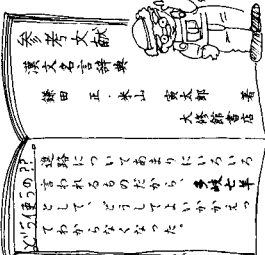 参考文献
漢文名言辞典
鎌田 正・米山 寅太郎 著
大修館書店
どう使うの??
進路についてあまりにいろいろ
言われるものだから、多岐亡羊
として、どうしてよいかかえっ
てわからなくなった。